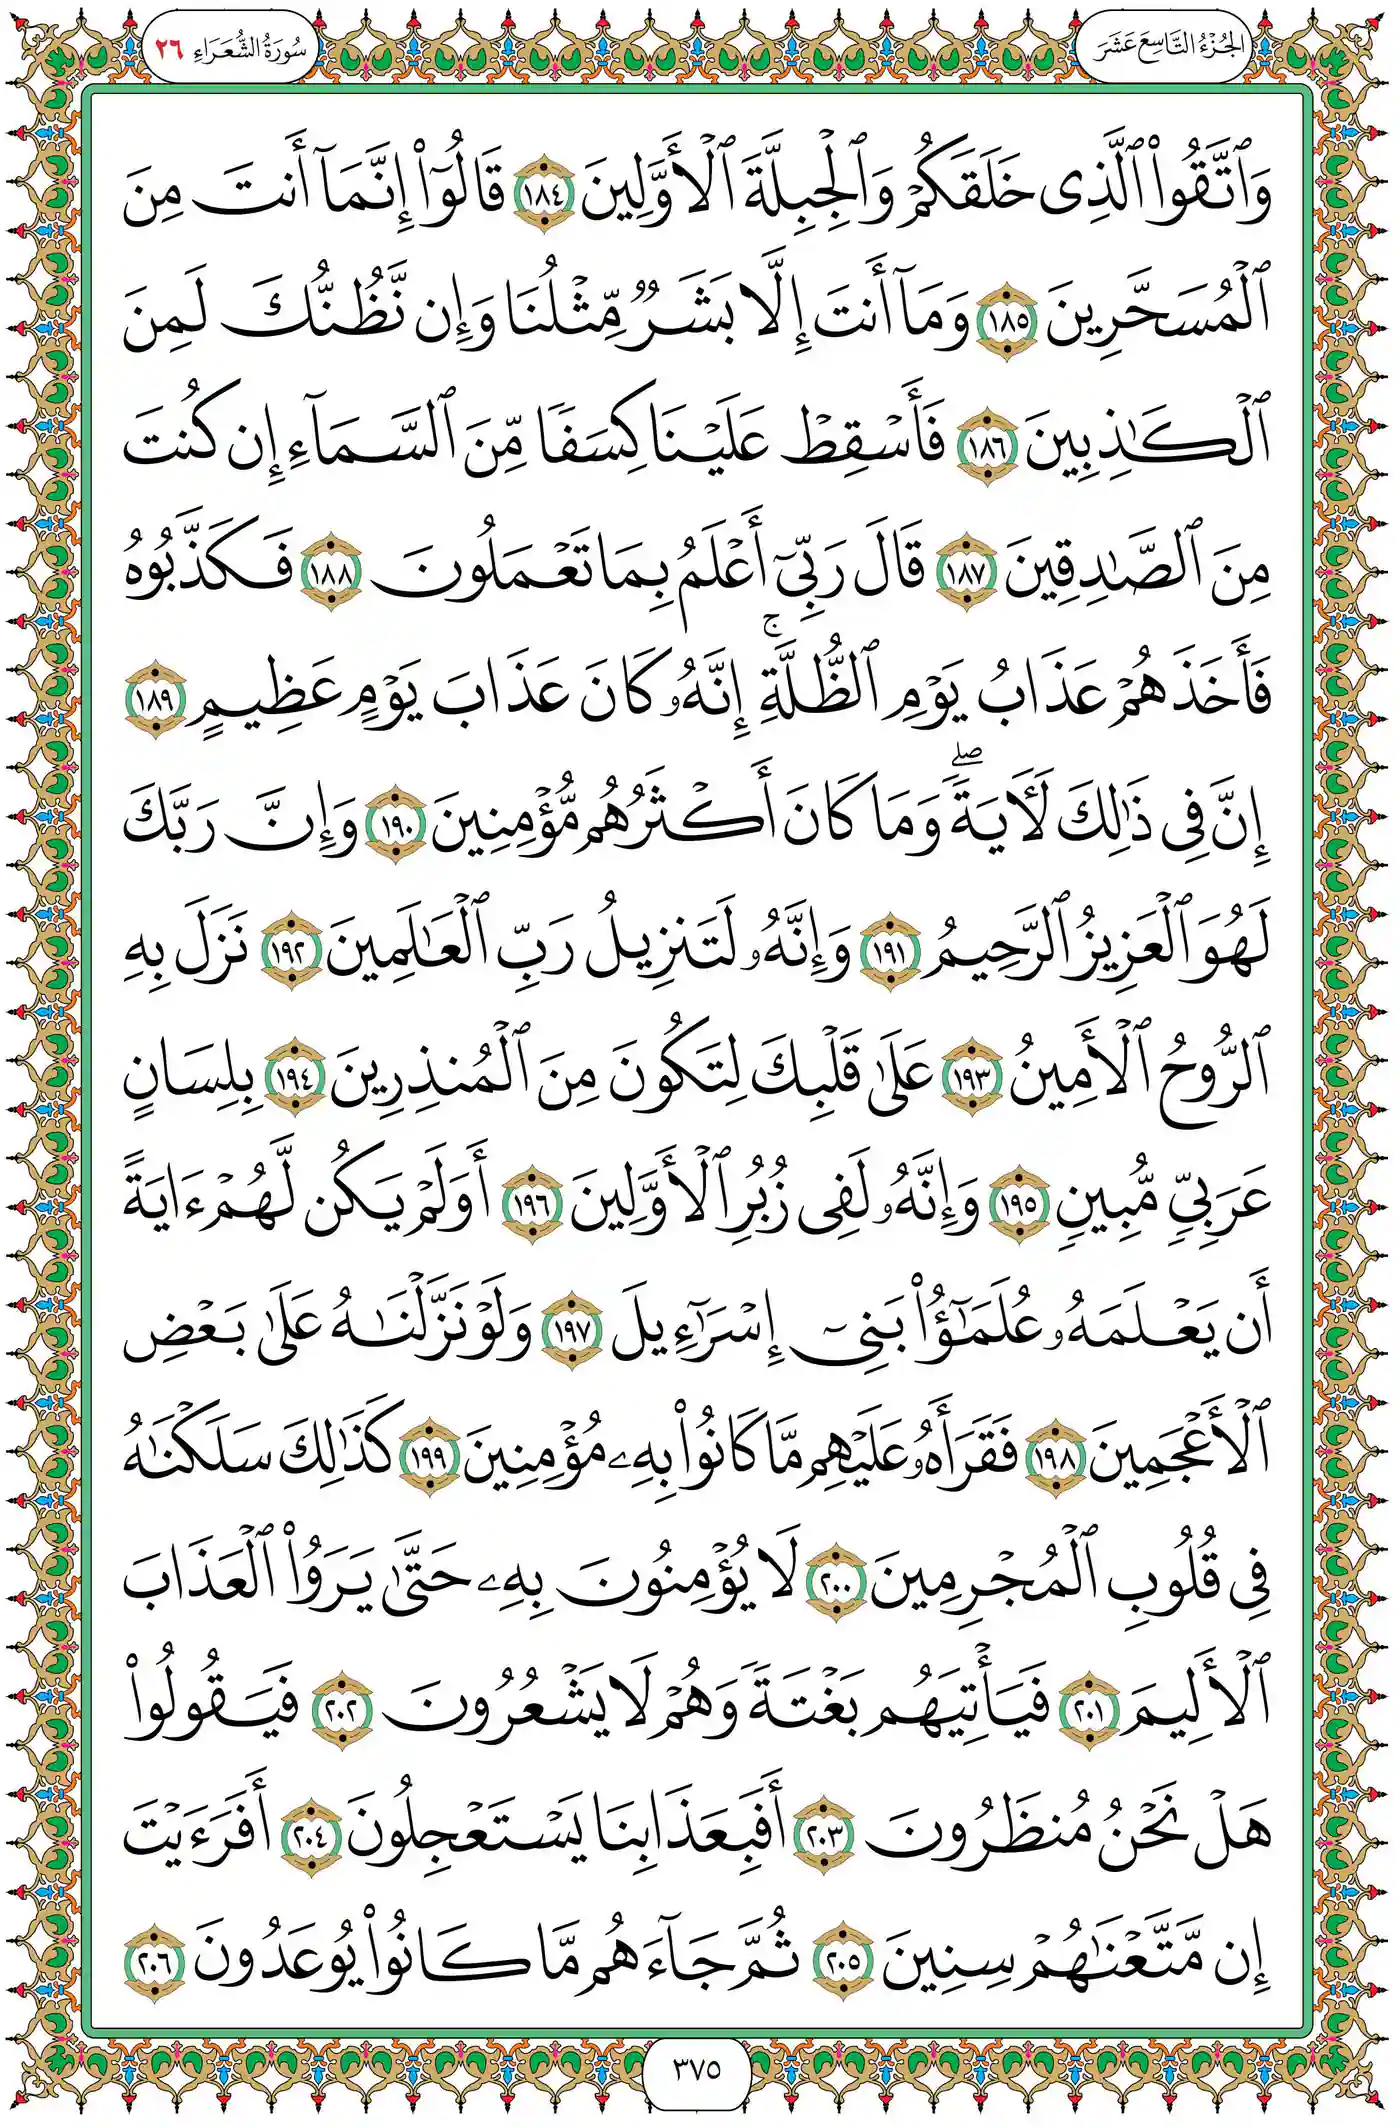 سُورَةُ الشُّعَرَاءِ ٢٦
الجُزْءُ التَّاسِعَ عَشَرَ
وَٱتَّقُوا۟ ٱلَّذِى خَلَقَكُمْ وَٱلْجِبِلَّةَ ٱلْأَوَّلِينَ ١٨٤ قَالُوٓا۟ إِنَّمَآ أَنتَ مِنَ
ٱلْمُسَحَّرِينَ ١٨٥ وَمَآ أَنتَ إِلَّا بَشَرٌ مِّثْلُنَا وَإِن نَّظُنُّكَ لَمِنَ
ٱلْكَـٰذِبِينَ ١٨٦ فَأَسْقِطْ عَلَيْنَا كِسَفًا مِّنَ ٱلسَّمَآءِ إِن كُنتَ
مِنَ ٱلصَّـٰدِقِينَ ١٨٧ قَالَ رَبِّىٓ أَعْلَمُ بِمَا تَعْمَلُونَ ١٨٨ فَكَذَّبُوهُ
فَأَخَذَهُمْ عَذَابُ يَوْمِ ٱلظُّلَّةِ ۚ إِنَّهُۥ كَانَ عَذَابَ يَوْمٍ عَظِيمٍ ١٨٩
إِنَّ فِى ذَٰلِكَ لَـَٔايَةً ۖ وَمَا كَانَ أَكْثَرُهُم مُّؤْمِنِينَ ١٩٠ وَإِنَّ رَبَّكَ
لَهُوَ ٱلْعَزِيزُ ٱلرَّحِيمُ ١٩١ وَإِنَّهُۥ لَتَنزِيلُ رَبِّ ٱلْعَـٰلَمِينَ ١٩٢ نَزَلَ بِهِ
ٱلرُّوحُ ٱلْأَمِينُ ١٩٣ عَلَىٰ قَلْبِكَ لِتَكُونَ مِنَ ٱلْمُنذِرِينَ ١٩٤ بِلِسَانٍ
عَرَبِىٍّ مُّبِينٍ ١٩٥ وَإِنَّهُۥ لَفِى زُبُرِ ٱلْأَوَّلِينَ ١٩٦ أَوَلَمْ يَكُن لَّهُمْ ءَايَةً
أَن يَعْلَمَهُۥ عُلَمَـٰٓؤُا۟ بَنِىٓ إِسْرَٰٓءِيلَ ١٩٧ وَلَوْ نَزَّلْنَـٰهُ عَلَىٰ بَعْضِ
ٱلْأَعْجَمِينَ ١٩٨ فَقَرَأَهُۥ عَلَيْهِم مَّا كَانُوا۟ بِهِۦ مُؤْمِنِينَ ١٩٩ كَذَٰلِكَ سَلَكْنَـٰهُ
فِى قُلُوبِ ٱلْمُجْرِمِينَ ٢٠٠ لَا يُؤْمِنُونَ بِهِۦ حَتَّىٰ يَرَوُا۟ ٱلْعَذَابَ
ٱلْأَلِيمَ ٢٠١ فَيَأْتِيَهُم بَغْتَةً وَهُمْ لَا يَشْعُرُونَ ٢٠٢ فَيَقُولُوا۟
هَلْ نَحْنُ مُنظَرُونَ ٢٠٣ أَفَبِعَذَابِنَا يَسْتَعْجِلُونَ ٢٠٤ أَفَرَءَيْتَ
إِن مَّتَّعْنَـٰهُمْ سِنِينَ ٢٠٥ ثُمَّ جَآءَهُم مَّا كَانُوا۟ يُوعَدُونَ ٢٠٦
٣٧٥